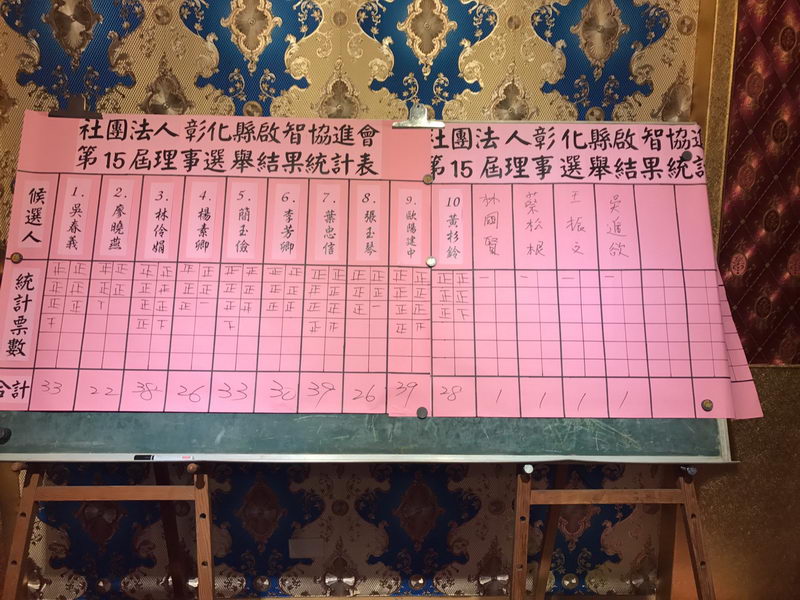 社團法人彰化縣啟智協進會
第15屆理事選舉結果統計表
社團法人彰化縣啟智協進
第15屆理事選舉結果統計
候選人
1.吳春義
2.廖曉燕
3.林伶娟
4.楊素卿
5.簡玉儉
6.李芳卿
7.葉忠信
8.張玉琴
9.歐陽建中
10黃杉鈴
林國賢
王振文
吳進欽
統計票數
正正正正正正下
正正正正丅
正正正正正正正下
正正正正正一
正正正正正正下
正正正正正正
正正正正正正正
正正正正正一
正正正正正正正
正正正正正下
一
一
一
一
合計
33
22
38
26
33
30
39
26
39
28
1
1
1
1